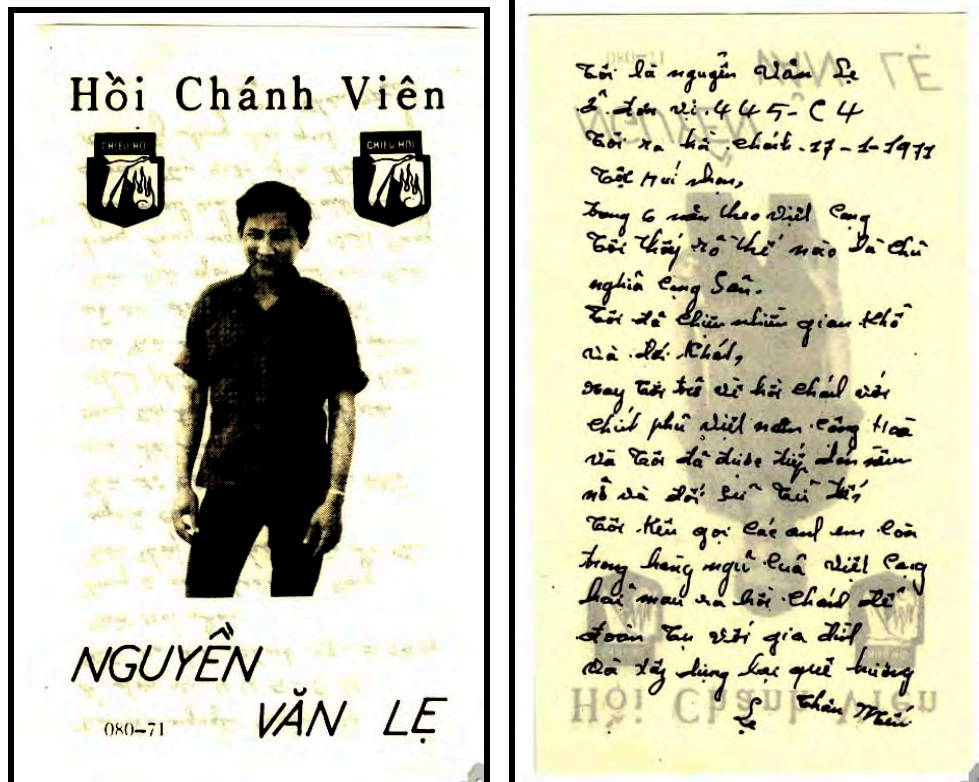 Hồi Chánh Viên
CHIEU HOI
CHIEU HOI
NGUYỀN
VĂN LẸ
080-71
Tôi là nguyễn Văn Lẹ
đơn vị 445-C4
Tôi ra hồi chánh 17-1-1971
Tại
trong 6 năm theo Việt Cộng
Tôi thấy rõ thế nào là Chủ
nghĩa Cộng Sản.
Tôi đã chịu nhiều gian khổ
và đói khát,
nay Tôi trở về hồi chánh với
chính phủ Việt nam Cộng Hoà
và Tôi đã được tiếp đón nồng
và đối tử tế
Tôi kêu gọi các anh em còn
trong hàng ngũ của Việt Cộng
hãy mau ra hồi chánh để
đoàn tụ với gia đình
và xây dựng lại quê hương
Thân mến
Lẹ